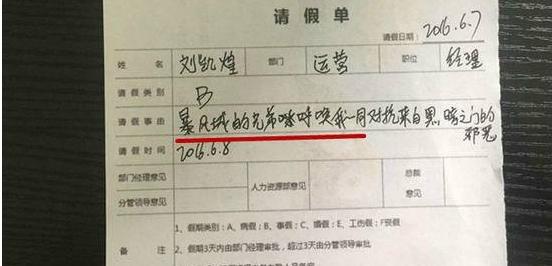 请假单
请假日期: 2016.6.7
姓名 刘凯煌 部门 运营 职位 经理
请假类别 B
请假事由 暴风城的兄弟呼唤我一同对抗来自黑暗之门的
邪恶
请假时间 2016.6.8
部门经理意见 人力资源部意见 总裁意见
分管领导意见
备注 1、假期类别:A、病假;B、事假;C、婚假;E、工伤假;F丧假
2、假期3天内由部门经理审批,超过3天由分管领导审批